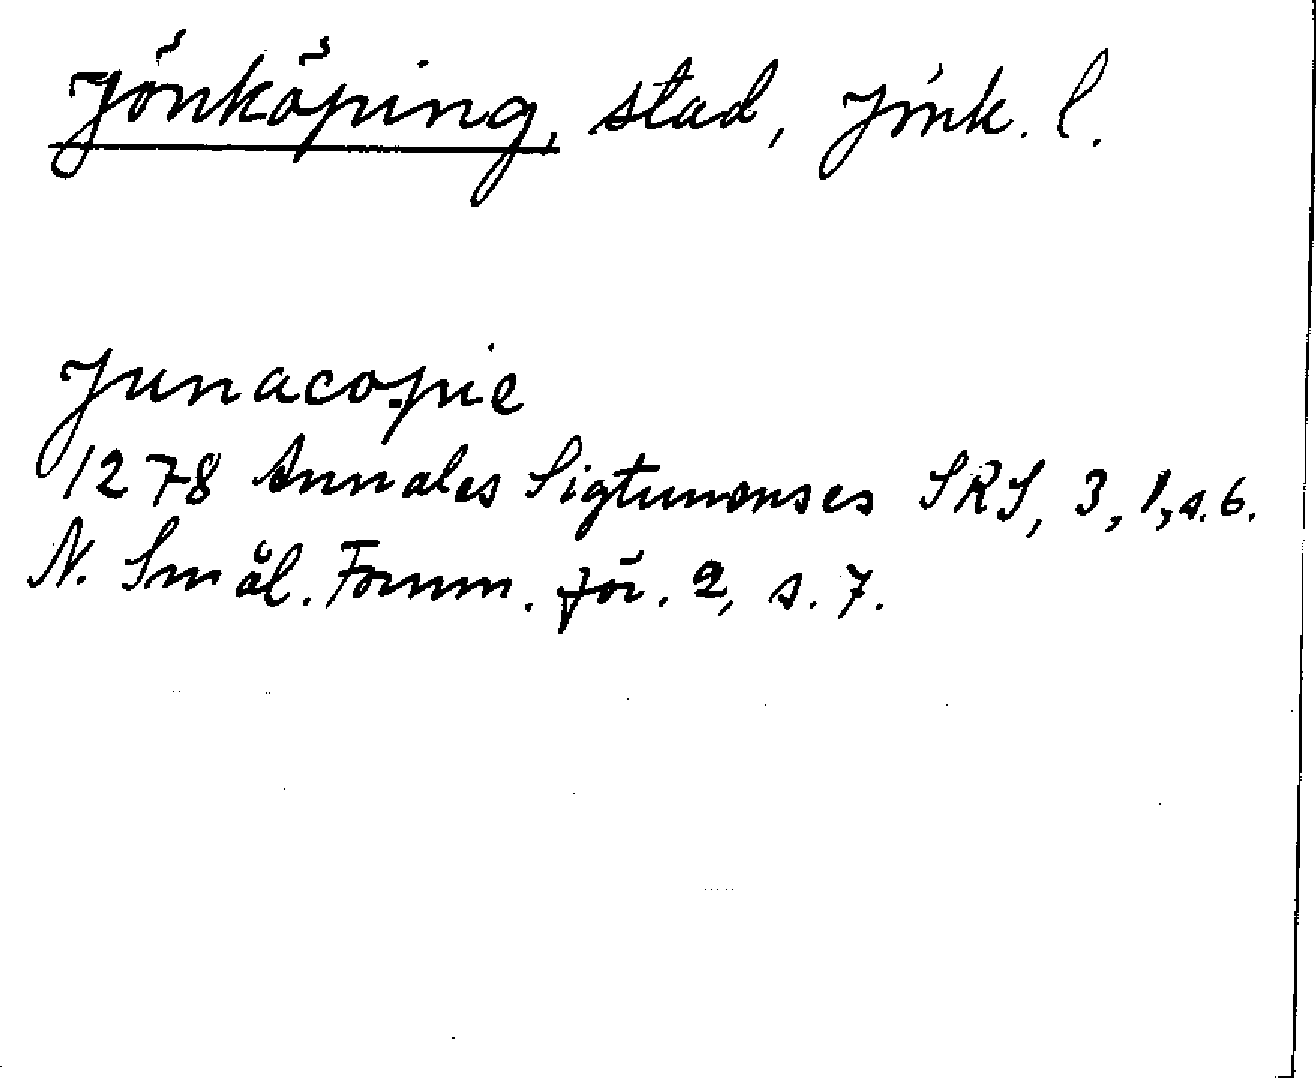 Jönköping, stad, Jönk. l.
Junacopie
1278 Annales Sigtunenses SRS, 3, 1, s. 6.
N. Smål. Fornm. för. 2, s. 7.